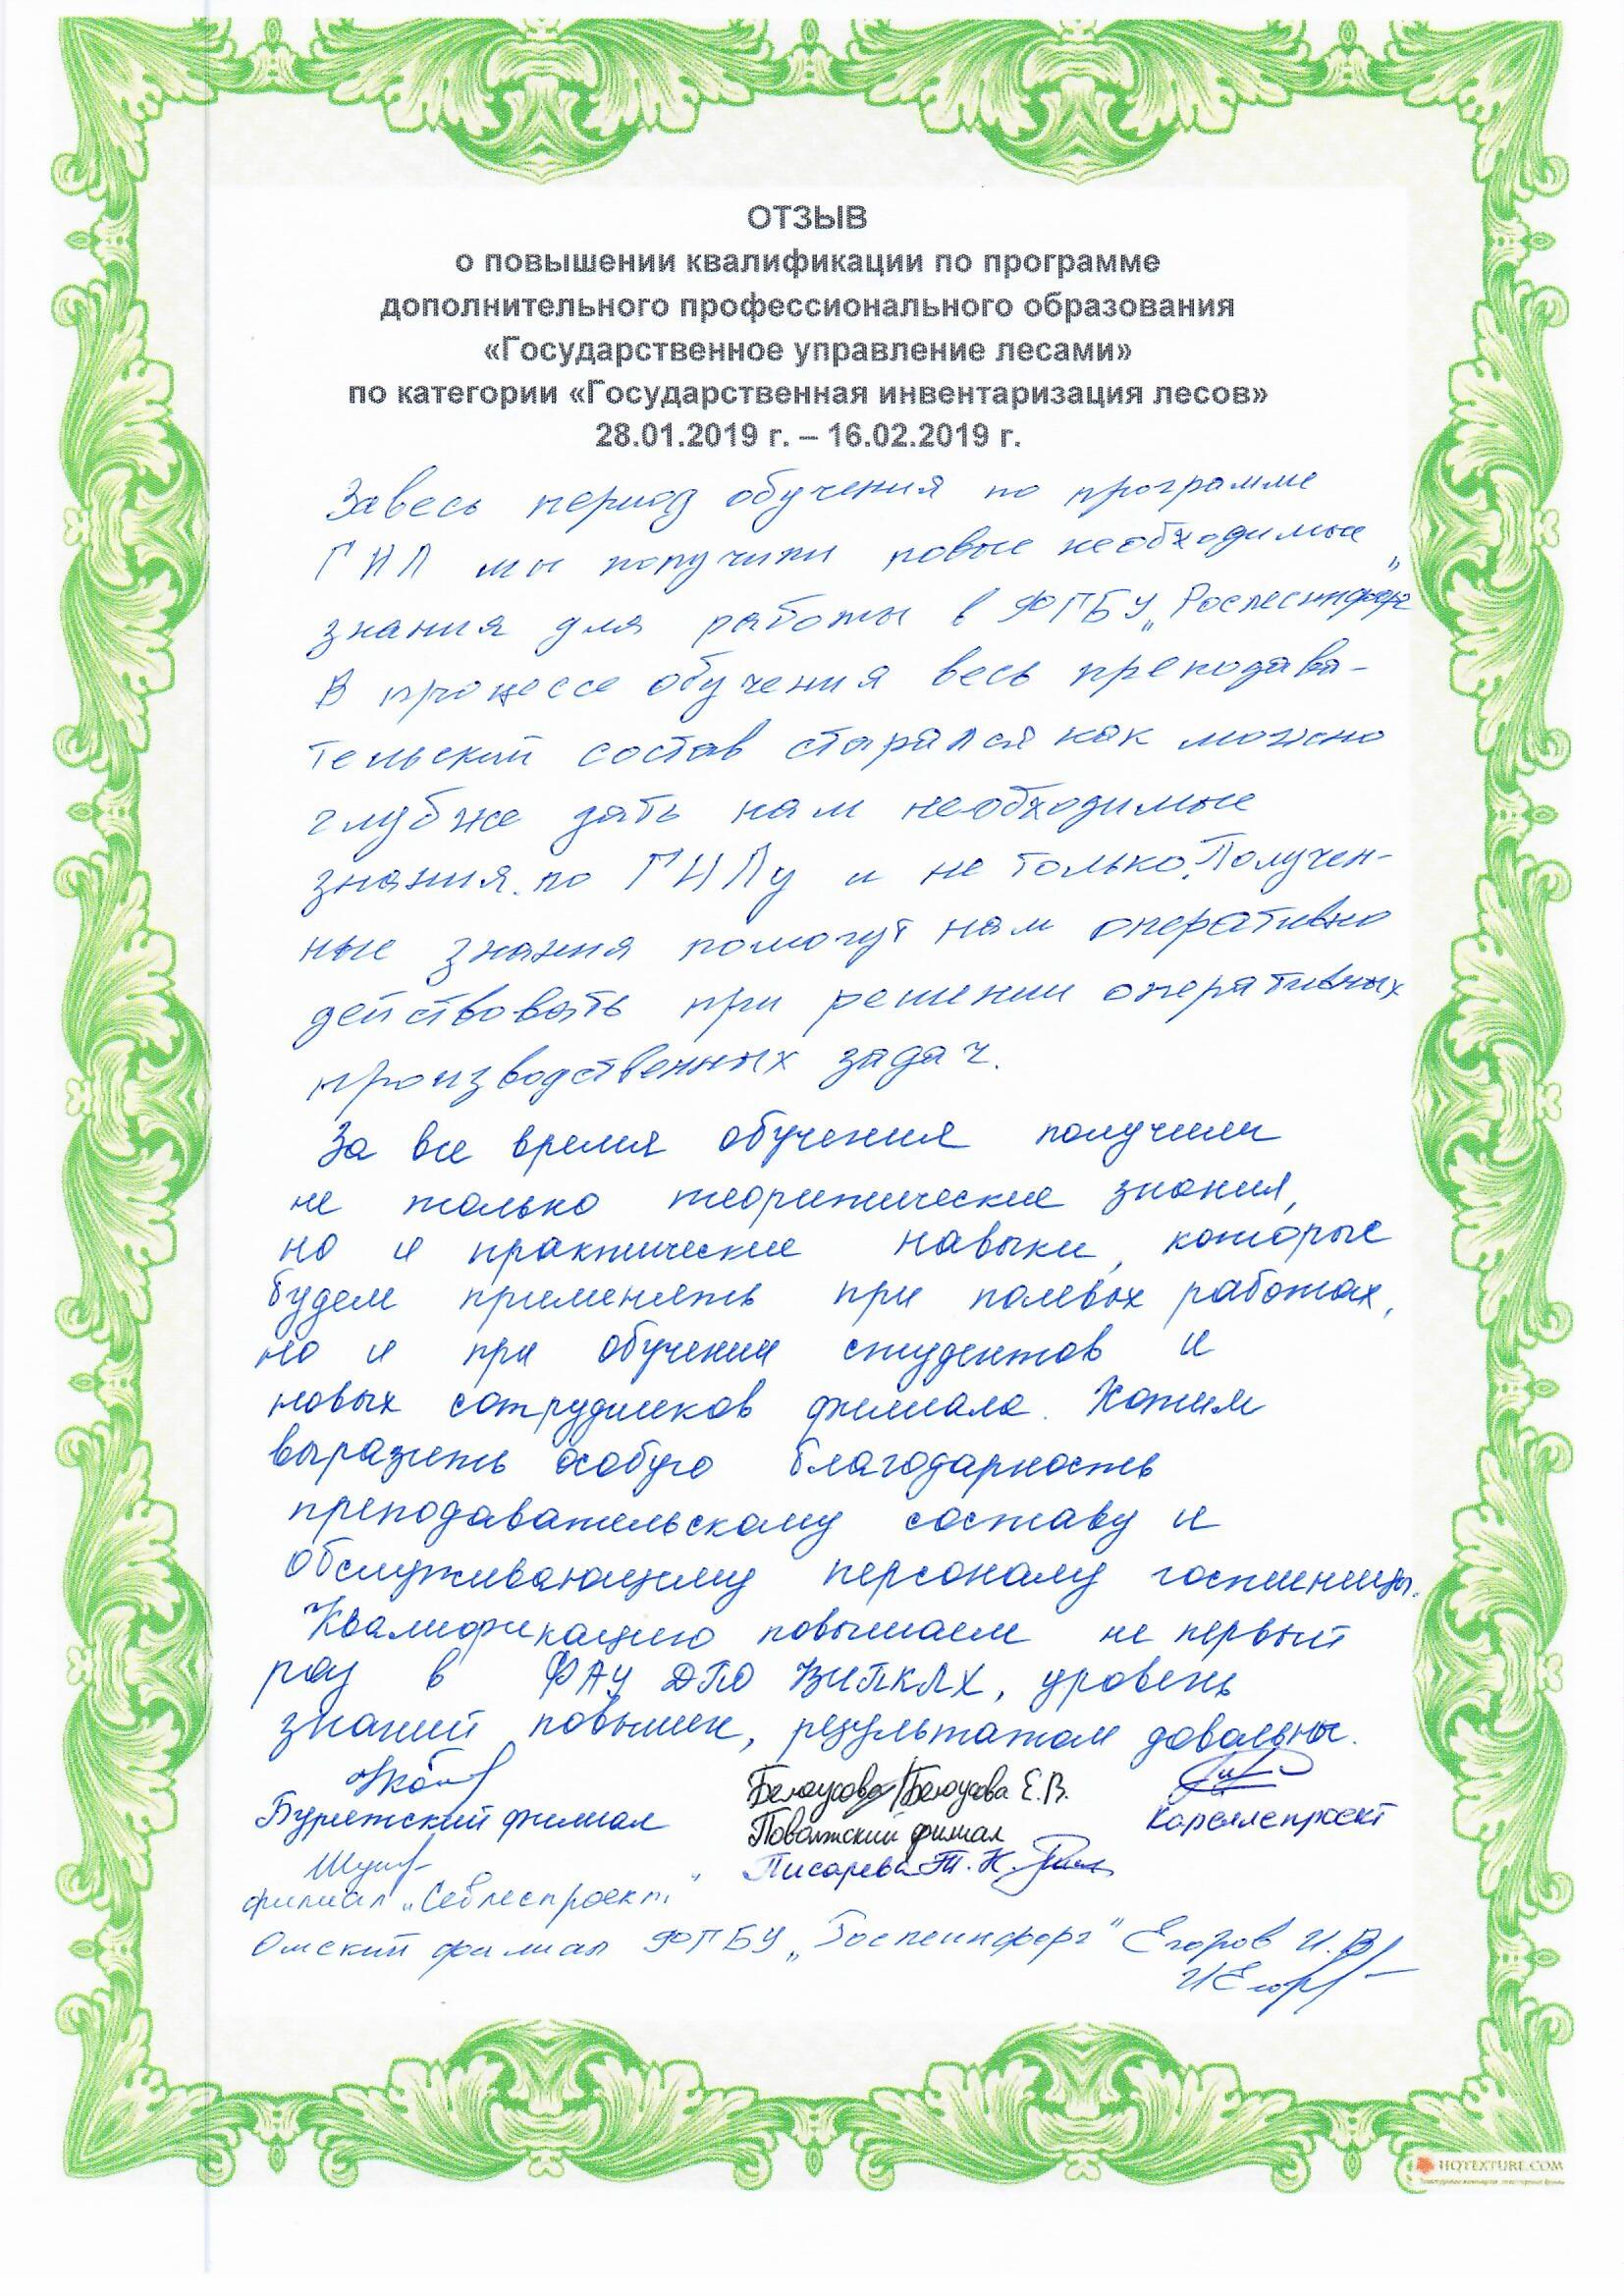 ОТЗЫВ
о повышении квалификации по программе
дополнительного профессионального образования
«Государственное управление лесами»
по категории «Государственная инвентаризация лесов»
28.01.2019 г. – 16.02.2019 г.
За весь период обучения по программе
ГИЛ мы получили новые необходимые
знания для работы в ФГБУ „Рослесинфорг"
В процессе обучения весь преподава-
тельский состав старался как можно
глубже дать нам необходимые
знания по ГИЛу и не только. Получен-
ные знания помогут нам оперативно
действовать при решении оперативных
производственных задач.
За все время обучения получили
не только теоритические знания,
но и практические навыки, которые
будем применять при полевых работах,
но и при обучении студентов и
новых сотрудников филиала. Хотим
выразить особую благодарность
преподавательскому составу и
обслуживающему персоналу гостиницы.
Квалификацию повышаем не первый
раз в ФАУ ДПО ВИПКЛХ, уровень
знаний повышен, результатом довольны.
Белоусова / Белоусова Е.В.
Бурятский филиал Поволжский филиал Кареллеспроект
Писарева Т.Н.
филиал „Севлеспроект"
Омский филиал ФГБУ „Рослесинфорг" Егоров И.В.